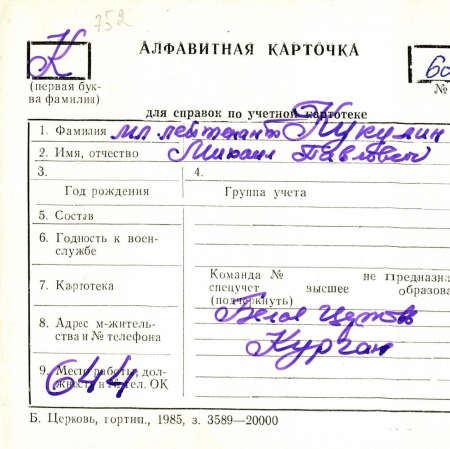 752
К АЛФАВИТНАЯ КАРТОЧКА 60
(первая бук-
ва фамилии) №
для справок по учетной картотеке
1. Фамилия мл лейтенант Кукулин
2. Имя, отчество Михаил Павлович
3. 4.
Год рождения Группа учета
5. Состав
6. Годность к воен-
службе
7. Картотека Команда № не предназна
спецучет высшее образова
(подчеркнуть)
8. Адрес м-житель-
ства и № телефона
Белая Церковь
Курган
9. Место работы, дол-
жность и № тел. ОК
644
Б. Церковь, гортип., 1985, з. 3589—20000